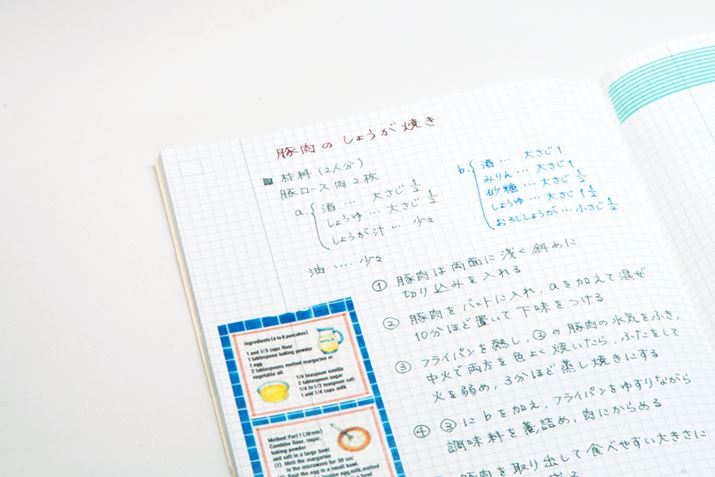 豚肉のしょうが焼き
材料(2人分)
豚ロース肉2枚
a. 酒… 大さじ1/2
しょうゆ… 大さじ1/2
しょうが汁… 少々
油…. 少々
b. 酒… 大さじ1
みりん… 大さじ1
砂糖… 大さじ1/2
しょうゆ… 大さじ1 1/2
おろししょうが… 小さじ1/2
① 豚肉は両面に浅く斜めに
切り込みを入れる
② 豚肉をバットに入れ、aを加えて混ぜ
10分ほど置いて下味をつける
③ フライパンを熱し、②の豚肉の水気をふき、
中火で両方を色よく焼いたら、ふたをして
火を弱め、3分ほど蒸し焼きにする
④ ③にbを加え、フライパンをゆすりながら
調味料を煮詰め、肉にからめる
豚肉を取り出して食べやすい大きさに
Ingredients (4 to 6 pancakes)
1 and 1/3 cups flour
1 tablespoon baking powder
1 egg
2 tablespoons melted margarine or
vegetable oil
1/4 teaspoon vanilla
2 tablespoon sugar
1/4 to 1/2 teaspoon salt
1 and 1/4 cups milk
MILK
Method: Part 1 (30min)
Combine flour, sugar,
baking powder
and salt in a large bowl
(1). Melt the margarine
in the microwave for 30 sec
(2). Beat the egg in a small bowl